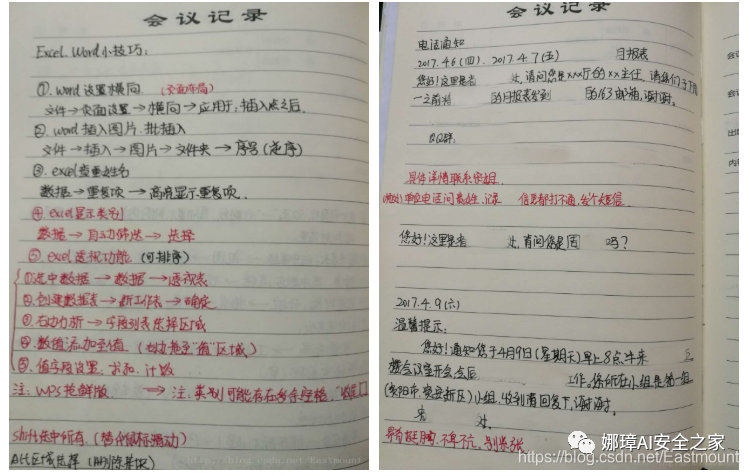 会议记录
Excel、Word小技巧:
①. word 设置横向 (页面布局)
文件→页面设置→横向→应用于:插入点之后
②. word 插入图片.批插入
文件→插入→图片→文件夹→序号(逆序)
③. excel查重姓名
数据→重复项→高亮显示重复项.
④. excel显示类别
数据→自动筛选→选择
⑤. excel透视功能 (可排序)
①选中数据→数据→透视表
②.创建数据表→新工作表→确定
③.右边分析→字段列表选择区域
④.数值添加至值 ("值"区域)
⑤.值字段设置、求和、计数
注: WPS抢鲜版 → 注:类别可能存在多余空格,
shift选中所有. (替代鼠标滑动)
Alt区域选择
http://blog.csdn.net/Eastmount
会议记录
电话通知
2017.4.6(四). 2017.4.7(五) 月报表
您好!这里是省 处,请问您是xxx厅的xx主任,请我们于下周
一之前将 的月报表发到 的163邮箱,谢谢.
QQ群:
具体详情联系安姐.
单位电话问贵姓,记录 信息都打不通,发个短信
您好!这里是省 处,请问您是 吗?
2017.4.9(六)
温馨提示:
您好!通知您于4月9日(星期天)早上8点半来
楼会议室开会,会后 工作.您所在小组是第一组
(贵阳市、贵安新区)小组,收到请回复下,谢谢.
省 处.
昂首挺胸、不卑不亢、别紧张
娜璋AI安全之家
https://blog.csdn.net/Eastmount